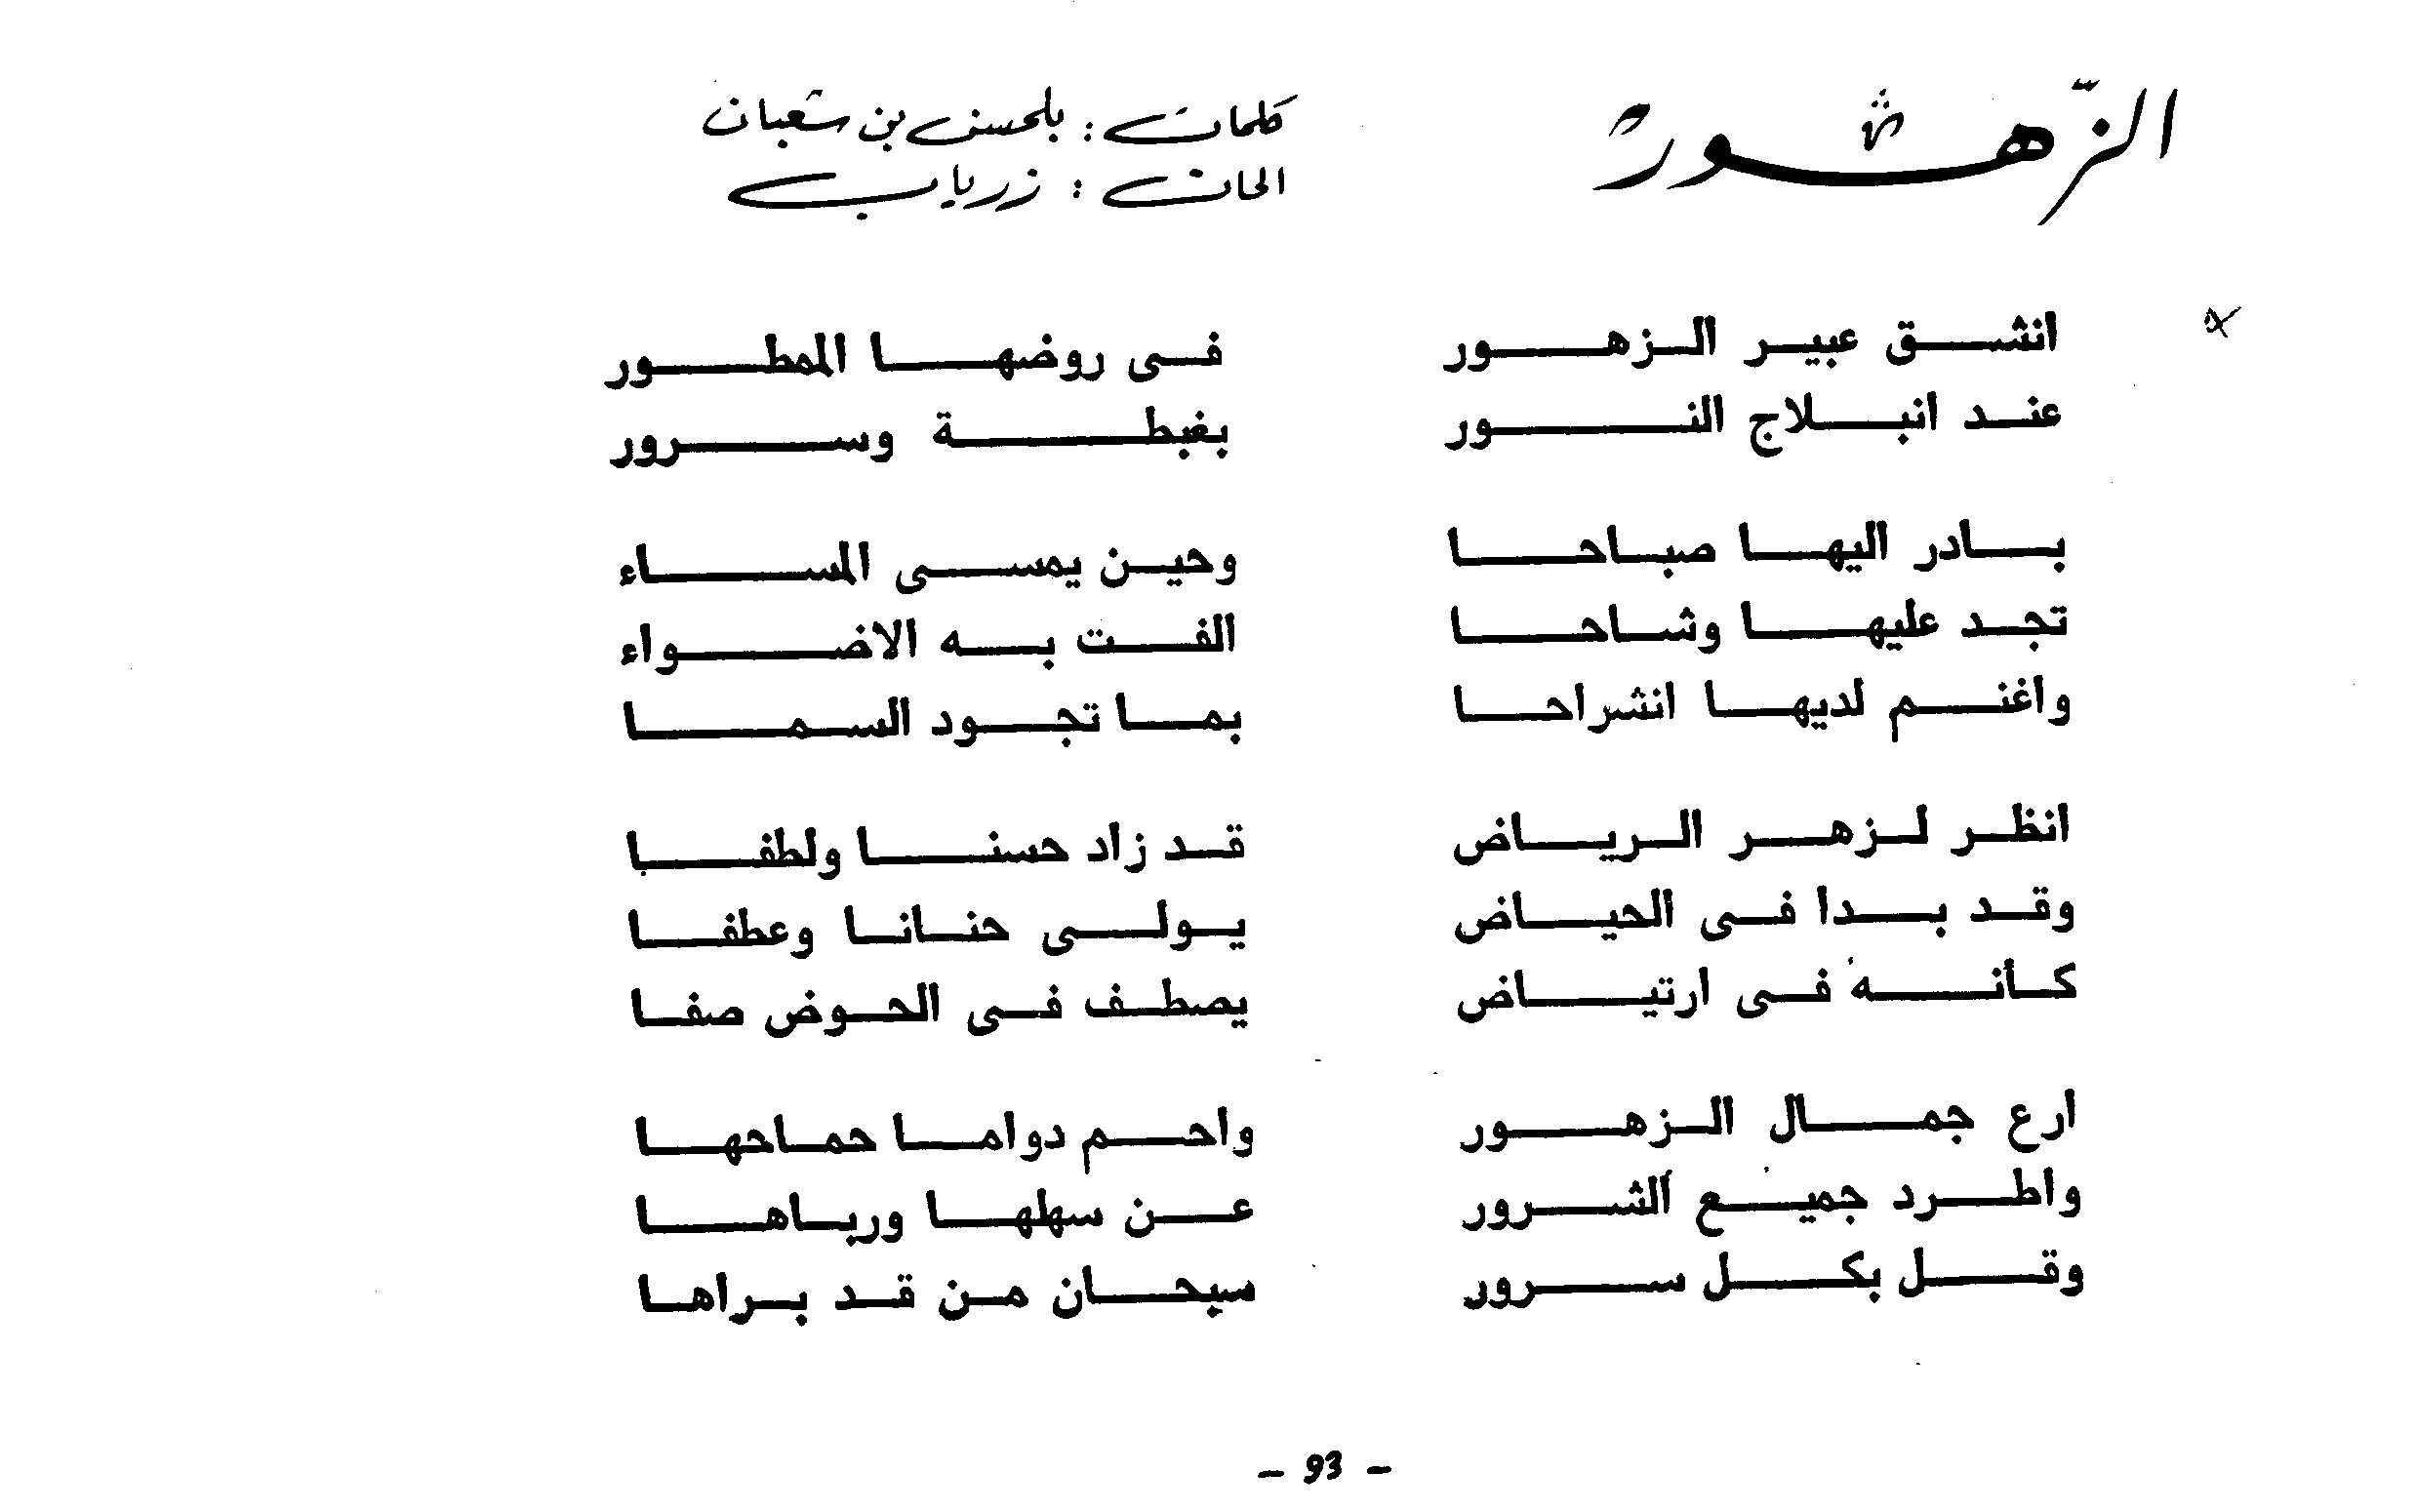 الزّهور
كلمات : بلحسن بن شعبان
الحان : زرياب
انشق عبير الزهور في روضها الممطور
عند انبلاج النور بغبطة وسرور
بادر اليها صباحا وحين يمسى المساء
تجد عليها وشاحا الفت به الاضواء
واغنم لديها انشراحا بما تجود السما
انظر لزهر الرياض قد زاد حسنا ولطفا
وقد بدا فى الحياض يولى حنانا وعطفا
كأنه فى ارتياض يصطف فى الحوض صفا
ارع جمال الزهور واحم دواما حماحها
واطرد جميع الشرور عن سهلها ورباها
وقل بكل سرور سبحان من قد براها
- 93 -